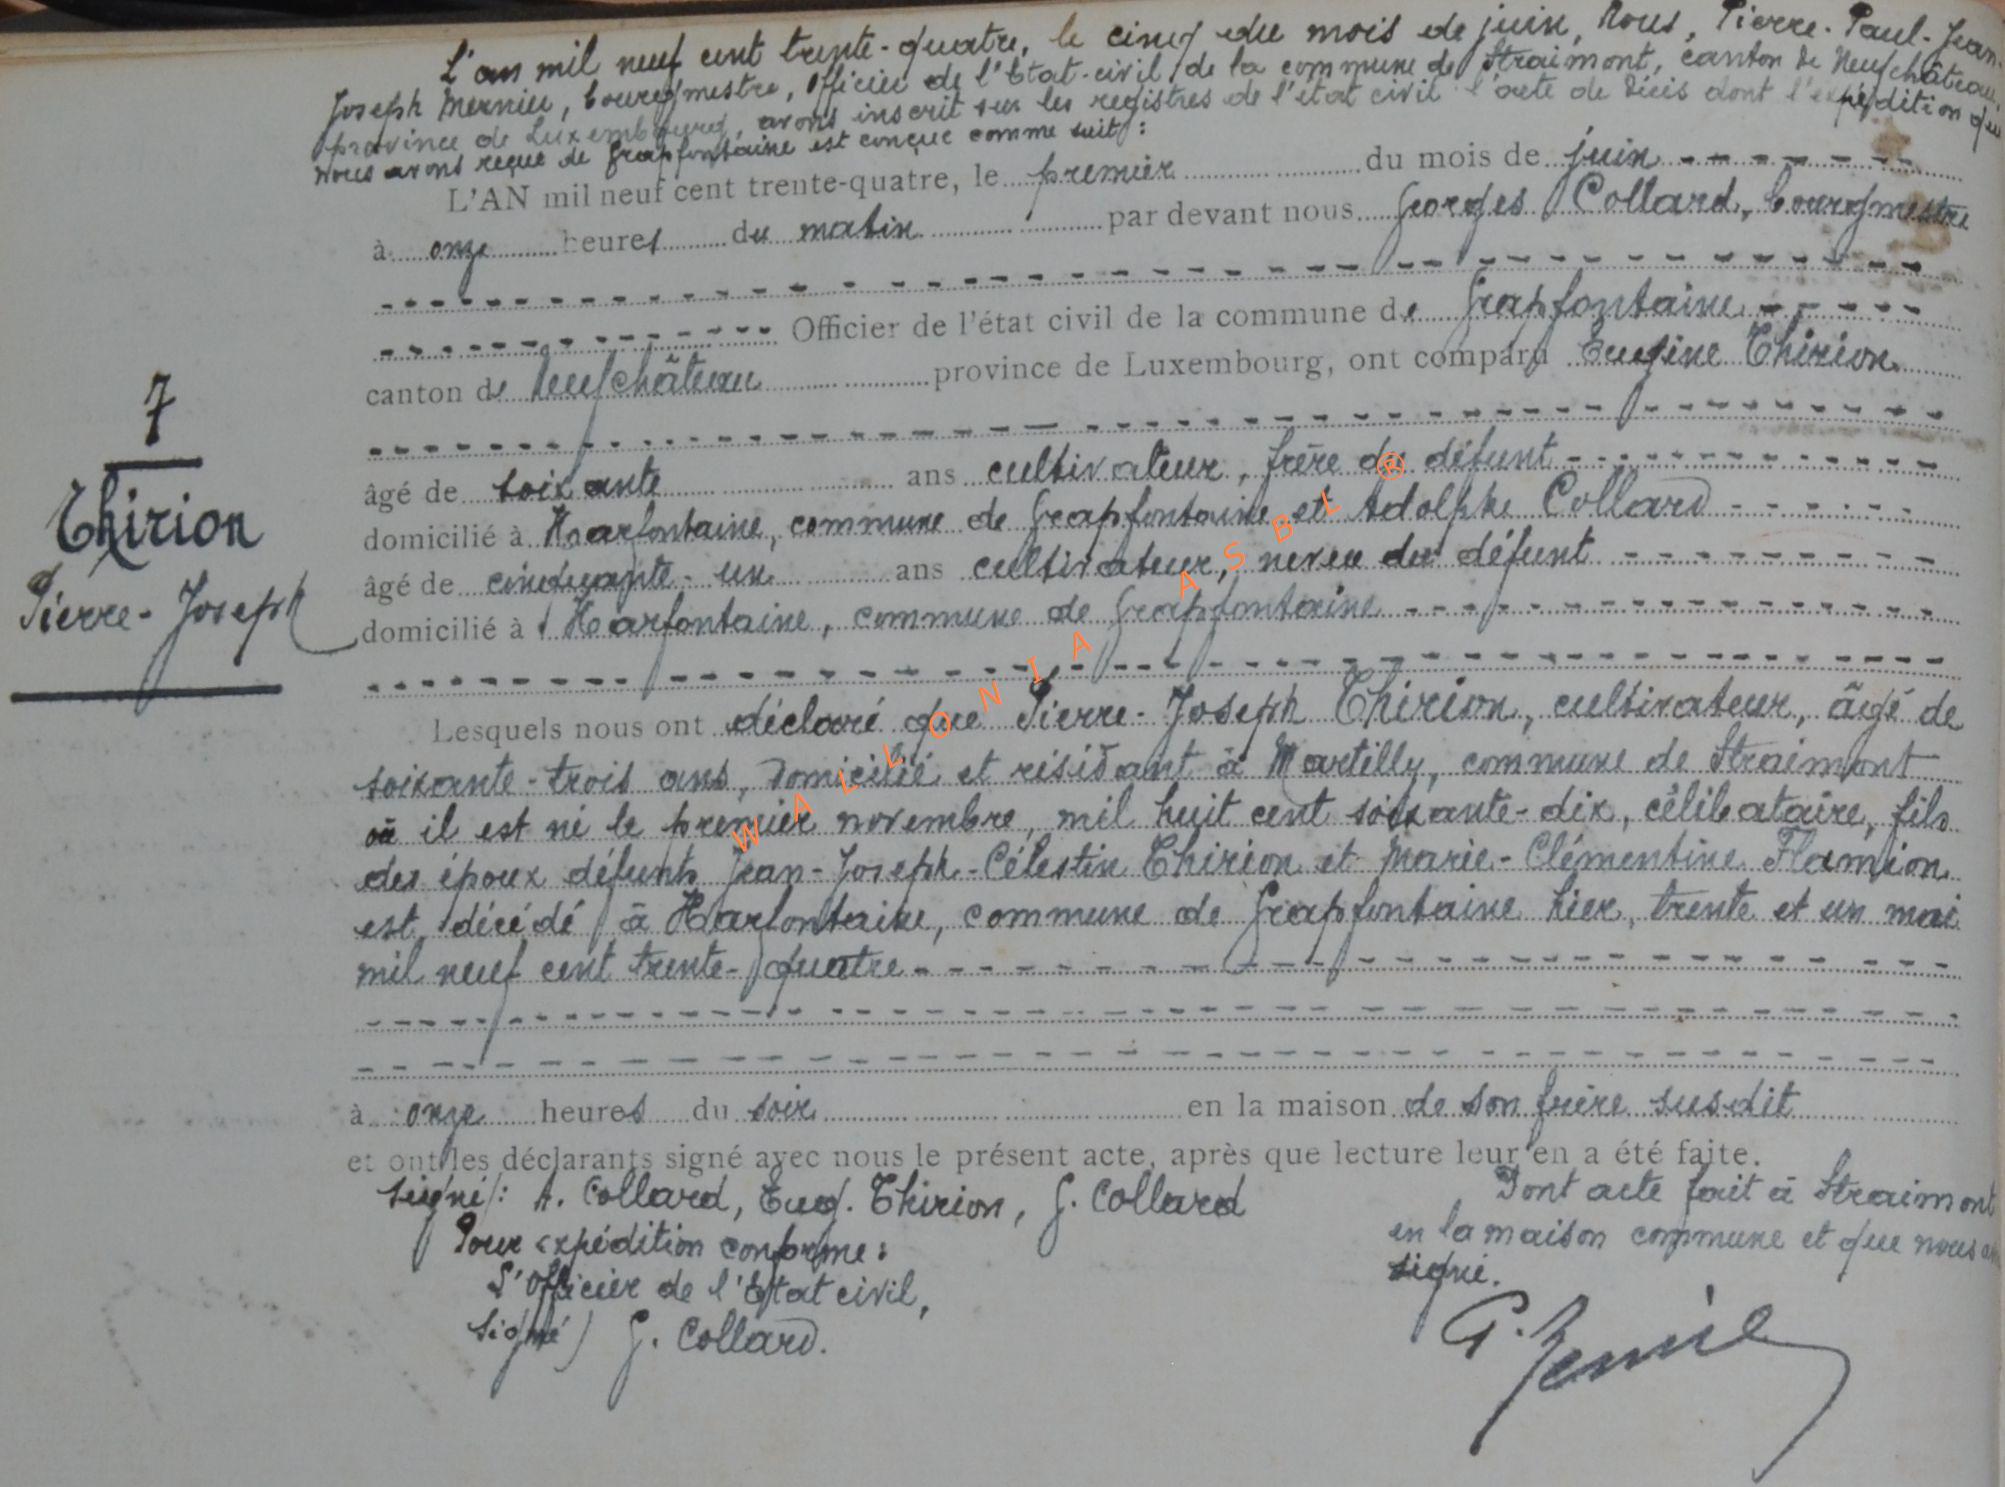 L'an mil neuf cent trente-quatre, le cinq du mois de juin, Nous, Pierre-Paul-Jean-
Joseph Mernier, bourgmestre, Officier de l'Etat-civil de la commune de Straimont, canton de Neufchâteau,
province de Luxembourg, avons inscrit sur les registres de l'état civil l'acte de décès dont l'expédition que
nous avons reçue de Grapfontaine est conçue comme suit :
L'AN mil neuf cent trente-quatre, le premier du mois de juin
à onze heures du matin par devant nous Georges Collard, bourgmestre
Officier de l'état civil de la commune de Grapfontaine
canton de Neufchâteau province de Luxembourg, ont comparu Eugène Thirion
7
Thirion
Pierre-Joseph
âgé de soixante ans cultivateur, frère du défunt
domicilié à Harfontaine, commune de Grapfontaine et Adolphe Collard
âgé de cinquante-un ans cultivateur, neveu du défunt
domicilié à Harfontaine, commune de Grapfontaine
Lesquels nous ont déclaré que Pierre-Joseph Thirion, cultivateur, âgé de
soixante-trois ans, domicilié et résidant à Martilly, commune de Straimont
où il est né le premier novembre, mil huit cent soixante-dix, célibataire, fils
des époux défunts Jean-Joseph-Célestin Thirion et Marie-Clémentine Flamion
est décédé à Harfontaine, commune de Grapfontaine hier, trente et un mai
mil neuf cent trente-quatre
à onze heures du soir en la maison de son frère susdit
et ont les déclarants signé avec nous le présent acte, après que lecture leur en a été faite.
signé/: A. Collard, Eug. Thirion, G. Collard
Pour expédition conforme :
L'Officier de l'Etat civil,
signé) G. Collard.
Dont acte fait à Straimont
en la maison commune et que nous
signé.
WALLONIA ASBL ®